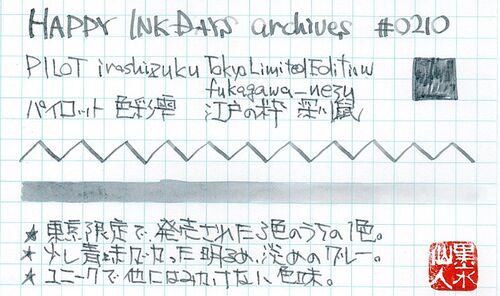 HAPPY INK DAYS archives #0210
PILOT iroshizuku Tokyo Limited Edition
fukagawa-nezu
パイロット 色彩雫 江戸の粋 深川鼠
★ 東京限定で発売された3色のうちの1色。
★ 少し青味がかった明るめ、淡めのグレー。
★ ユニークで他にはみかけない色味。